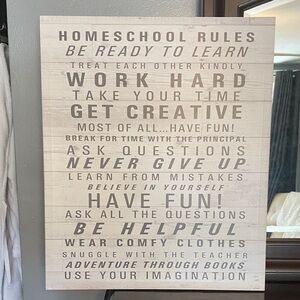 HOMESCHOOL RULES
BE READY TO LEARN
TREAT EACH OTHER KINDLY
WORK HARD
TAKE YOUR TIME
GET CREATIVE
MOST OF ALL...HAVE FUN!
BREAK FOR TIME WITH THE PRINCIPAL
ASK QUESTIONS
NEVER GIVE UP
LEARN FROM MISTAKES
BELIEVE IN YOURSELF
HAVE FUN!
ASK ALL THE QUESTIONS
BE HELPFUL
WEAR COMFY CLOTHES
SNUGGLE WITH THE TEACHER
ADVENTURE THROUGH BOOKS
USE YOUR IMAGINATION